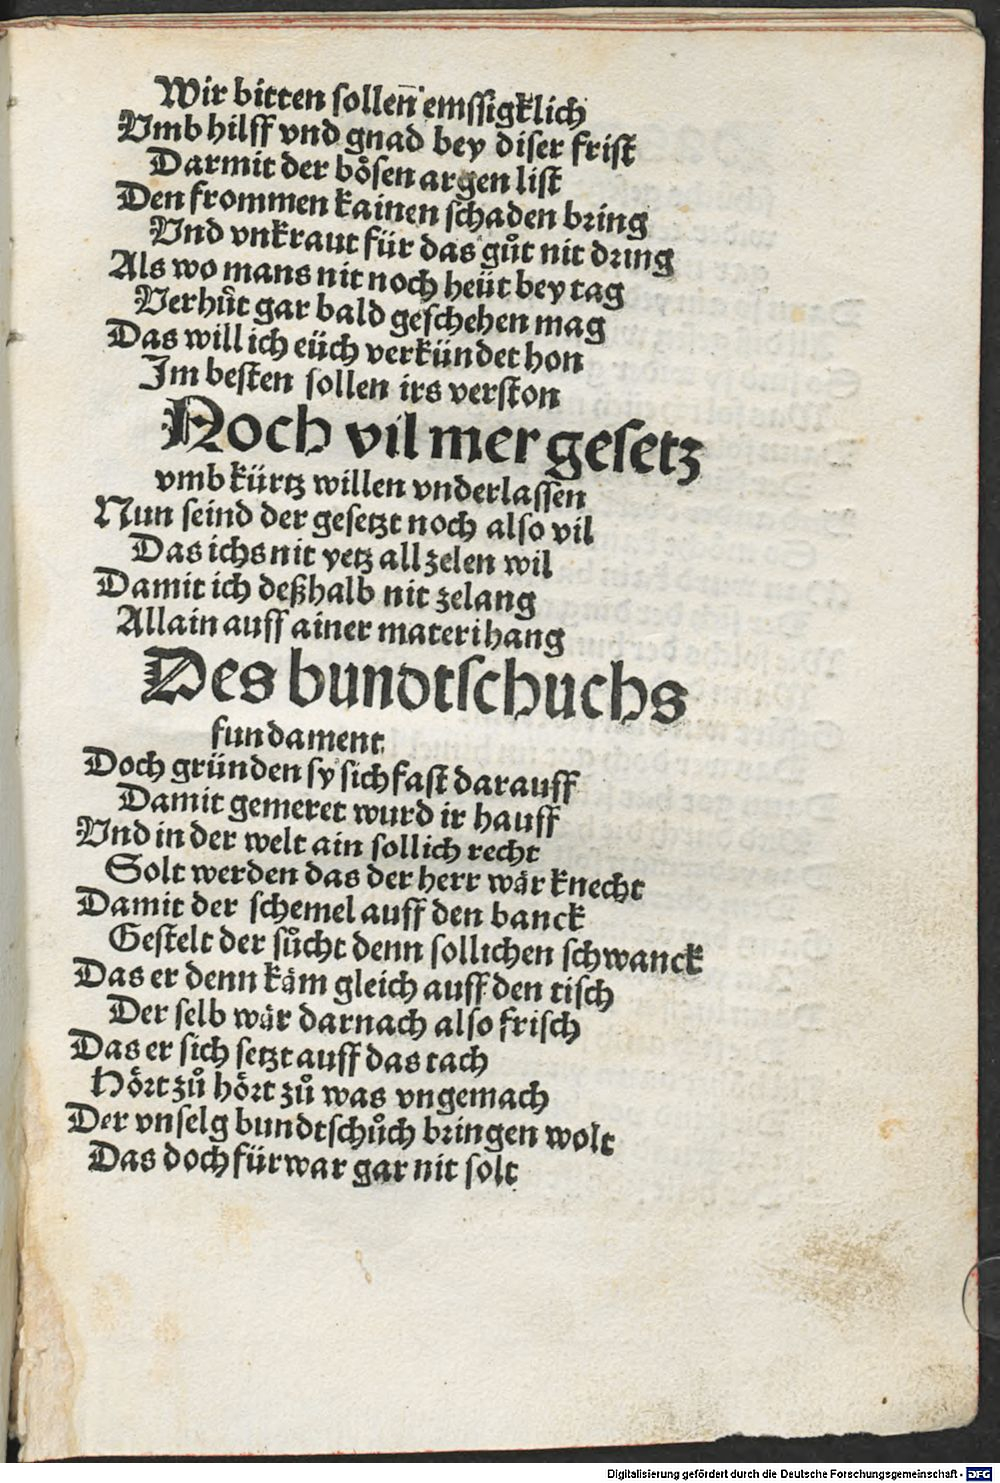 Wir bitten sollen̄ emssigklich
Vmb hilff vnd gnad bey diser frist
Darmit der boͤsen argen list
Den frommen kainen schaden bring
Vnd vnkraut für das guͦt nit dring
Als wo mans nit noch heüt bey tag
Verhuͤt gar bald geschehen mag
Das will ich eüch verkündet hon
Im besten sollen irs verston
Noch vil mer gesetz
vmb kürtz willen vnderlassen
Nun seind der gesetzt noch also vil
Das ichs nit yetz all zelen wil
Damit ich deßhalb nit zelang
Allain auff ainer materi hang
Des bundtschuchs
fundament
Doch gründen sy sich fast darauff
Damit gemeret wurd ir hauff
Vnd in der welt ain sollich recht
Solt werden das der herr waͤr knecht
Damit der schemel auff den banck
Gestelt der suͦcht denn sollichen schwanck
Das er denn kaͤm gleich auff den tisch
Der selb waͤr darnach also frisch
Das er sich setzt auff das tach
Hoͤrt zuͦ hoͤrt zuͦ was vngemach
Der vnselg bundtschuͦch bringen wolt
Das doch fürwar gar nit solt
Digitalisierung gefördert durch die Deutsche Forschungsgemeinschaft - DFG